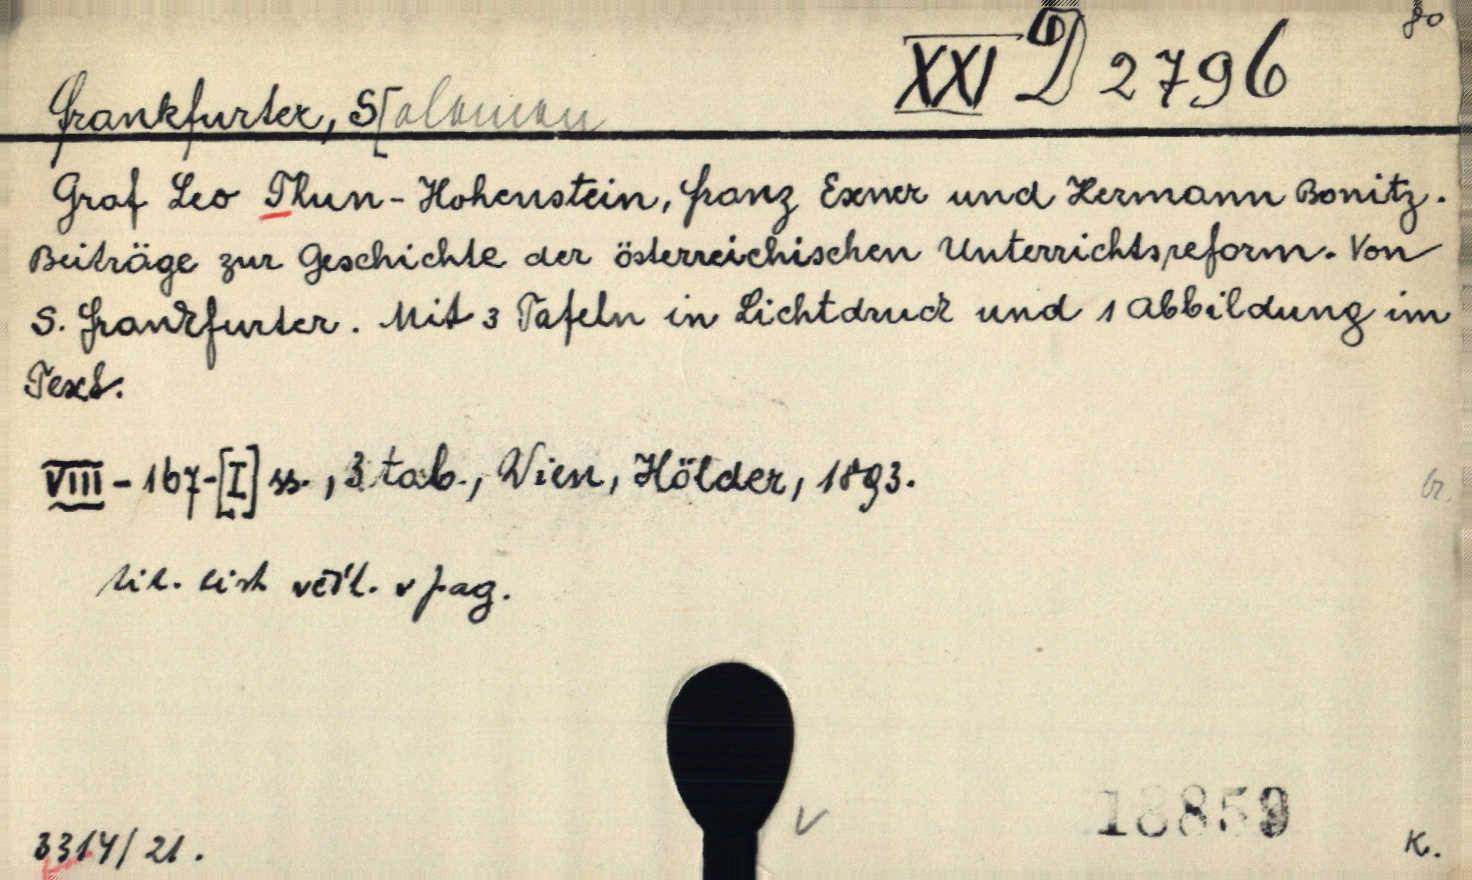 8o
XXI D 2796
Frankfurter, S[alomon
Graf Leo Thun-Hohenstein, Franz Exner und Hermann Bonitz.
Beiträge zur Geschichte der österreichischen Unterrichtsreform. Von
S. Frankfurter. Mit 3 Tafeln in Lichtdruck und 1 Abbildung im
Text.
VIII-167-[I] ss., 3 tab., Wien, Hölder, 1893.
br.
tit. list v pag.
18859
3314/21.
K.